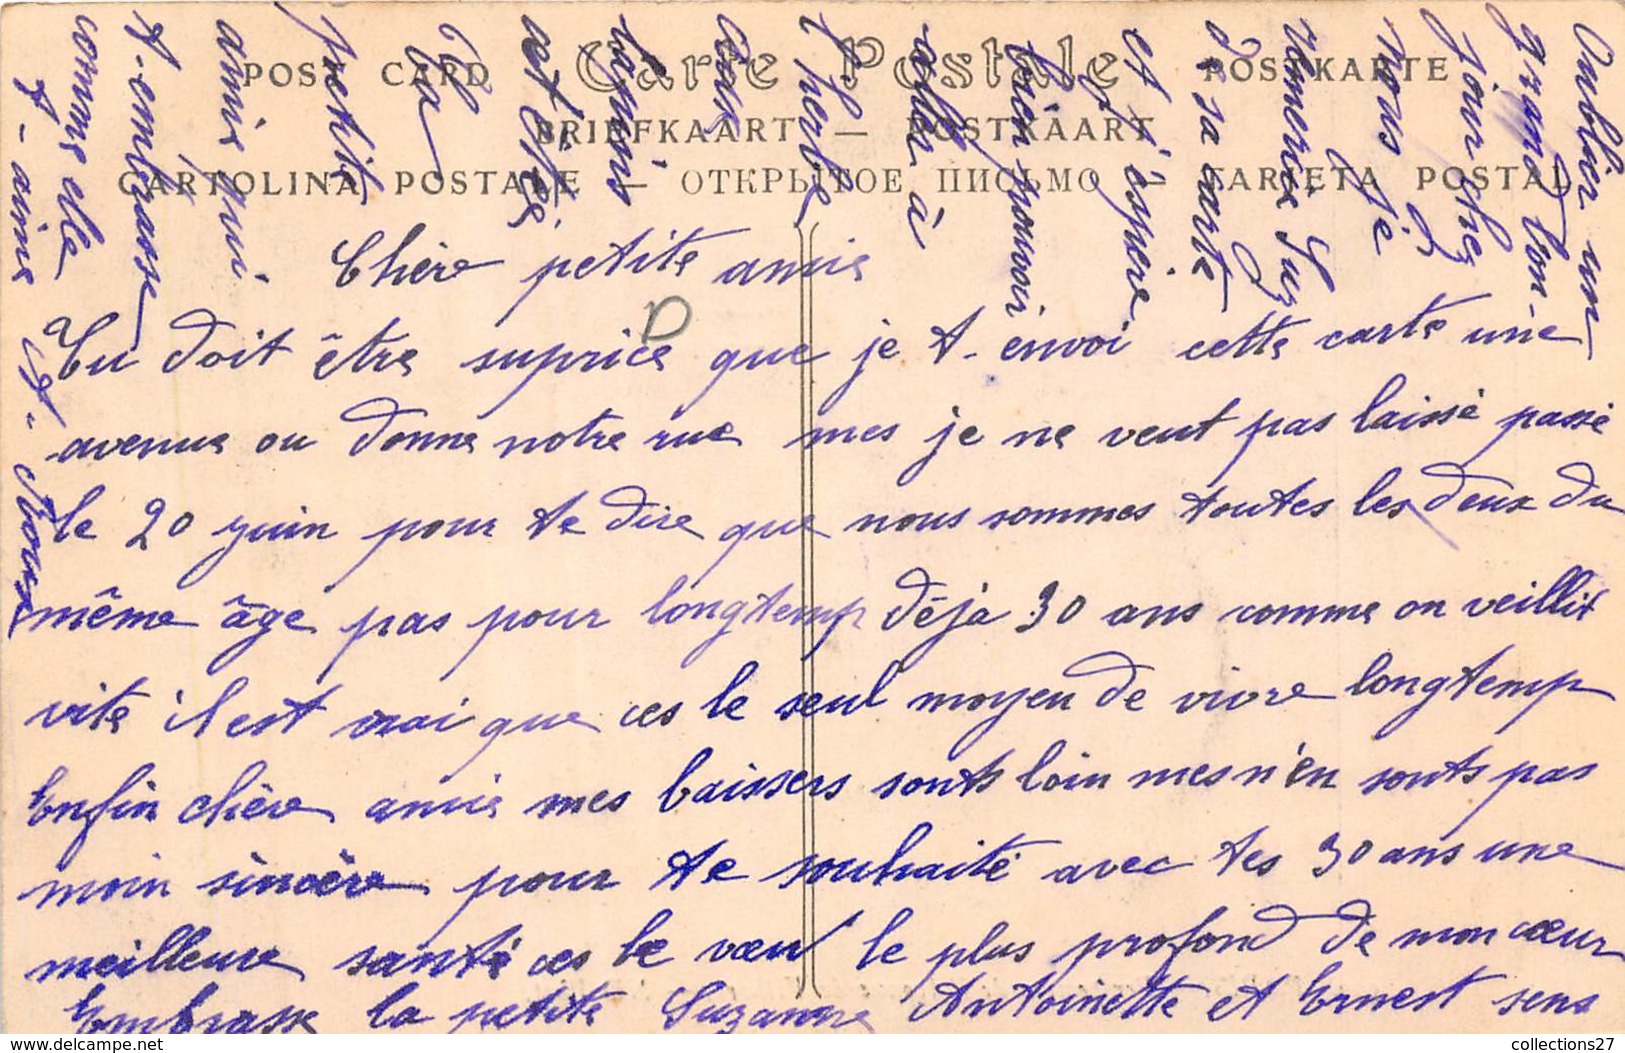 POST CARD Carte Postale POSTKARTE
BRIEFKAART — POSTKAART
CARTOLINA POSTALE — ОТКРЫТОЕ ПИСЬМО — TARJETA POSTAL
D
Chère petite amie
Tu doit être suprice que je t-envoi cette carte une
avenue ou donne notre rue mes je ne veut pas laissé passé
le 20 juin pour te dire que nous sommes toutes les deux du
même âge pas pour longtemp déjà 30 ans comme on veillit
vite il est vrai que ces le seul moyen de vivre longtemp
Enfin chère amie mes baissers sonts loin mes n'en sonts pas
moin sincère pour te souhaité avec tes 30 ans une
meilleure santé ces le vœu le plus profond de mon cœur
Embrasse la petite Suzanne Antoinette et Ernest sens
Oublier un
grand bon-
jour chez
vous
je
remercie Suz
de sa carte
et j'espère
bien pouvoir
allé à
l'herbe
aux
lapins
cet été
la
petite
amie qui
t-embrasse
comme elle
t-aime